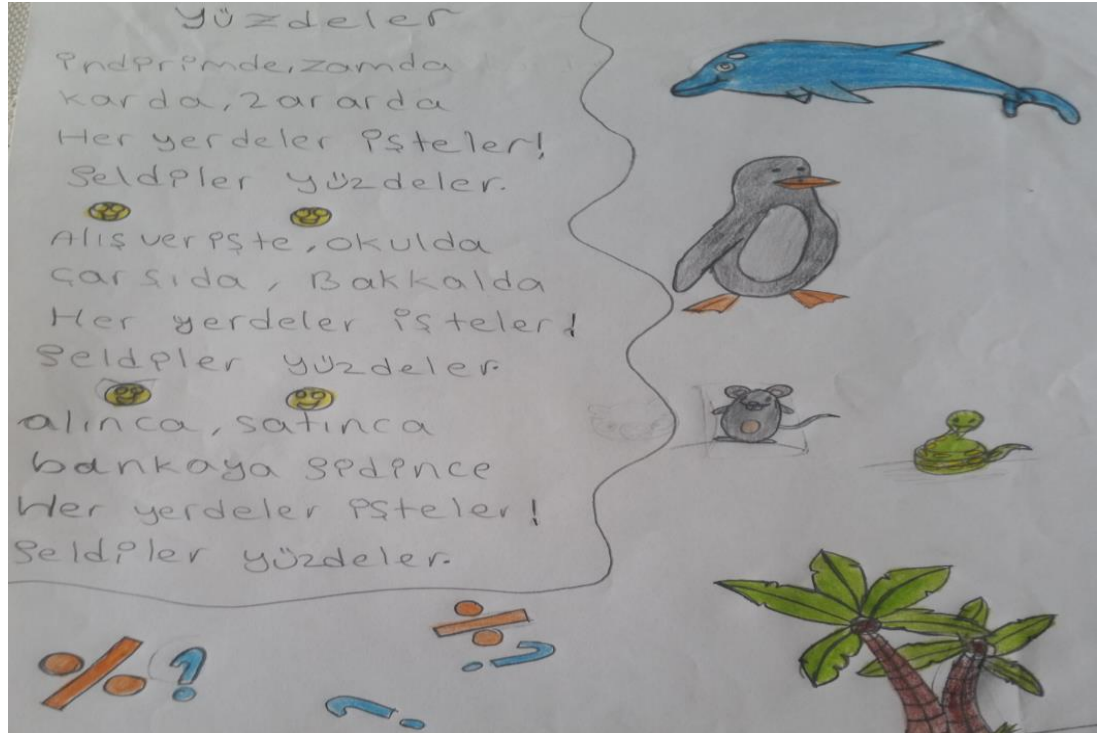 Yüzdeler
indirimde, zamda
karda, zararda
Her yerdeler işteler!
geldiler yüzdeler.
Alış verişte, okulda
çarşıda, Bakkalda
Her yerdeler işteler!
geldiler yüzdeler.
alınca, satınca
bankaya gidince
Her yerdeler işteler!
geldiler yüzdeler.
% ?
% ?
?